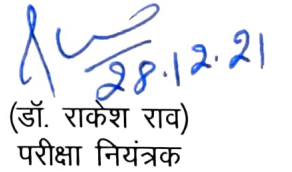 28.12.21
(डॉ. राकेश राव)
परीक्षा नियंत्रक